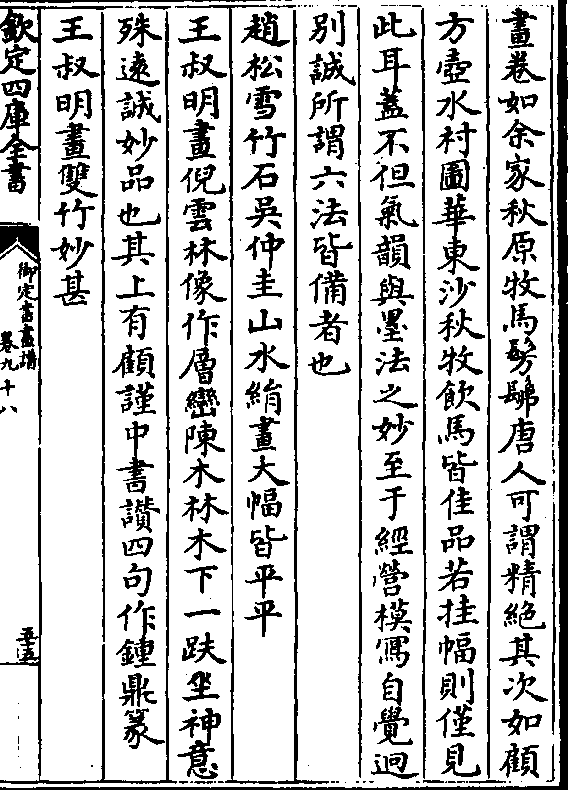 畫卷如余家秋原牧馬髣髴唐人可謂精絶其次如顧
方壺水村圖華東沙秋牧飲馬皆佳品若挂幅則僅見
此耳蓋不但氣韻與墨法之妙至于經營模寫自覺迥
别誠所謂六法皆備者也
趙松雪竹石吳仲圭山水絹畫大幅皆平平
王叔明畫倪雲林像作層巒陳木林木下一趺坐神意
殊逺誠妙品也其上有顧謹中書讚四句作鍾鼎篆
王叔明畫雙竹妙甚
欽定四庫全書
御定書畫譜
卷九十八
五五